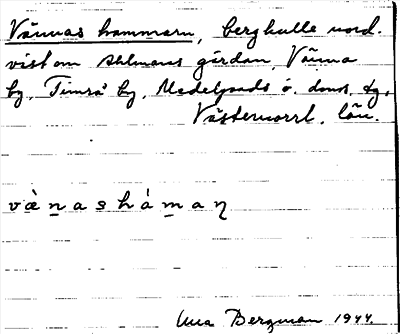 Vännas hammarn, bergkulle nord.
väst om Ahlmans gården, Vänna
by, Timrå by, Medelpads ö. doms. tg,
Västernorrl. län.
vànashámaŋ
Bergman 1944.